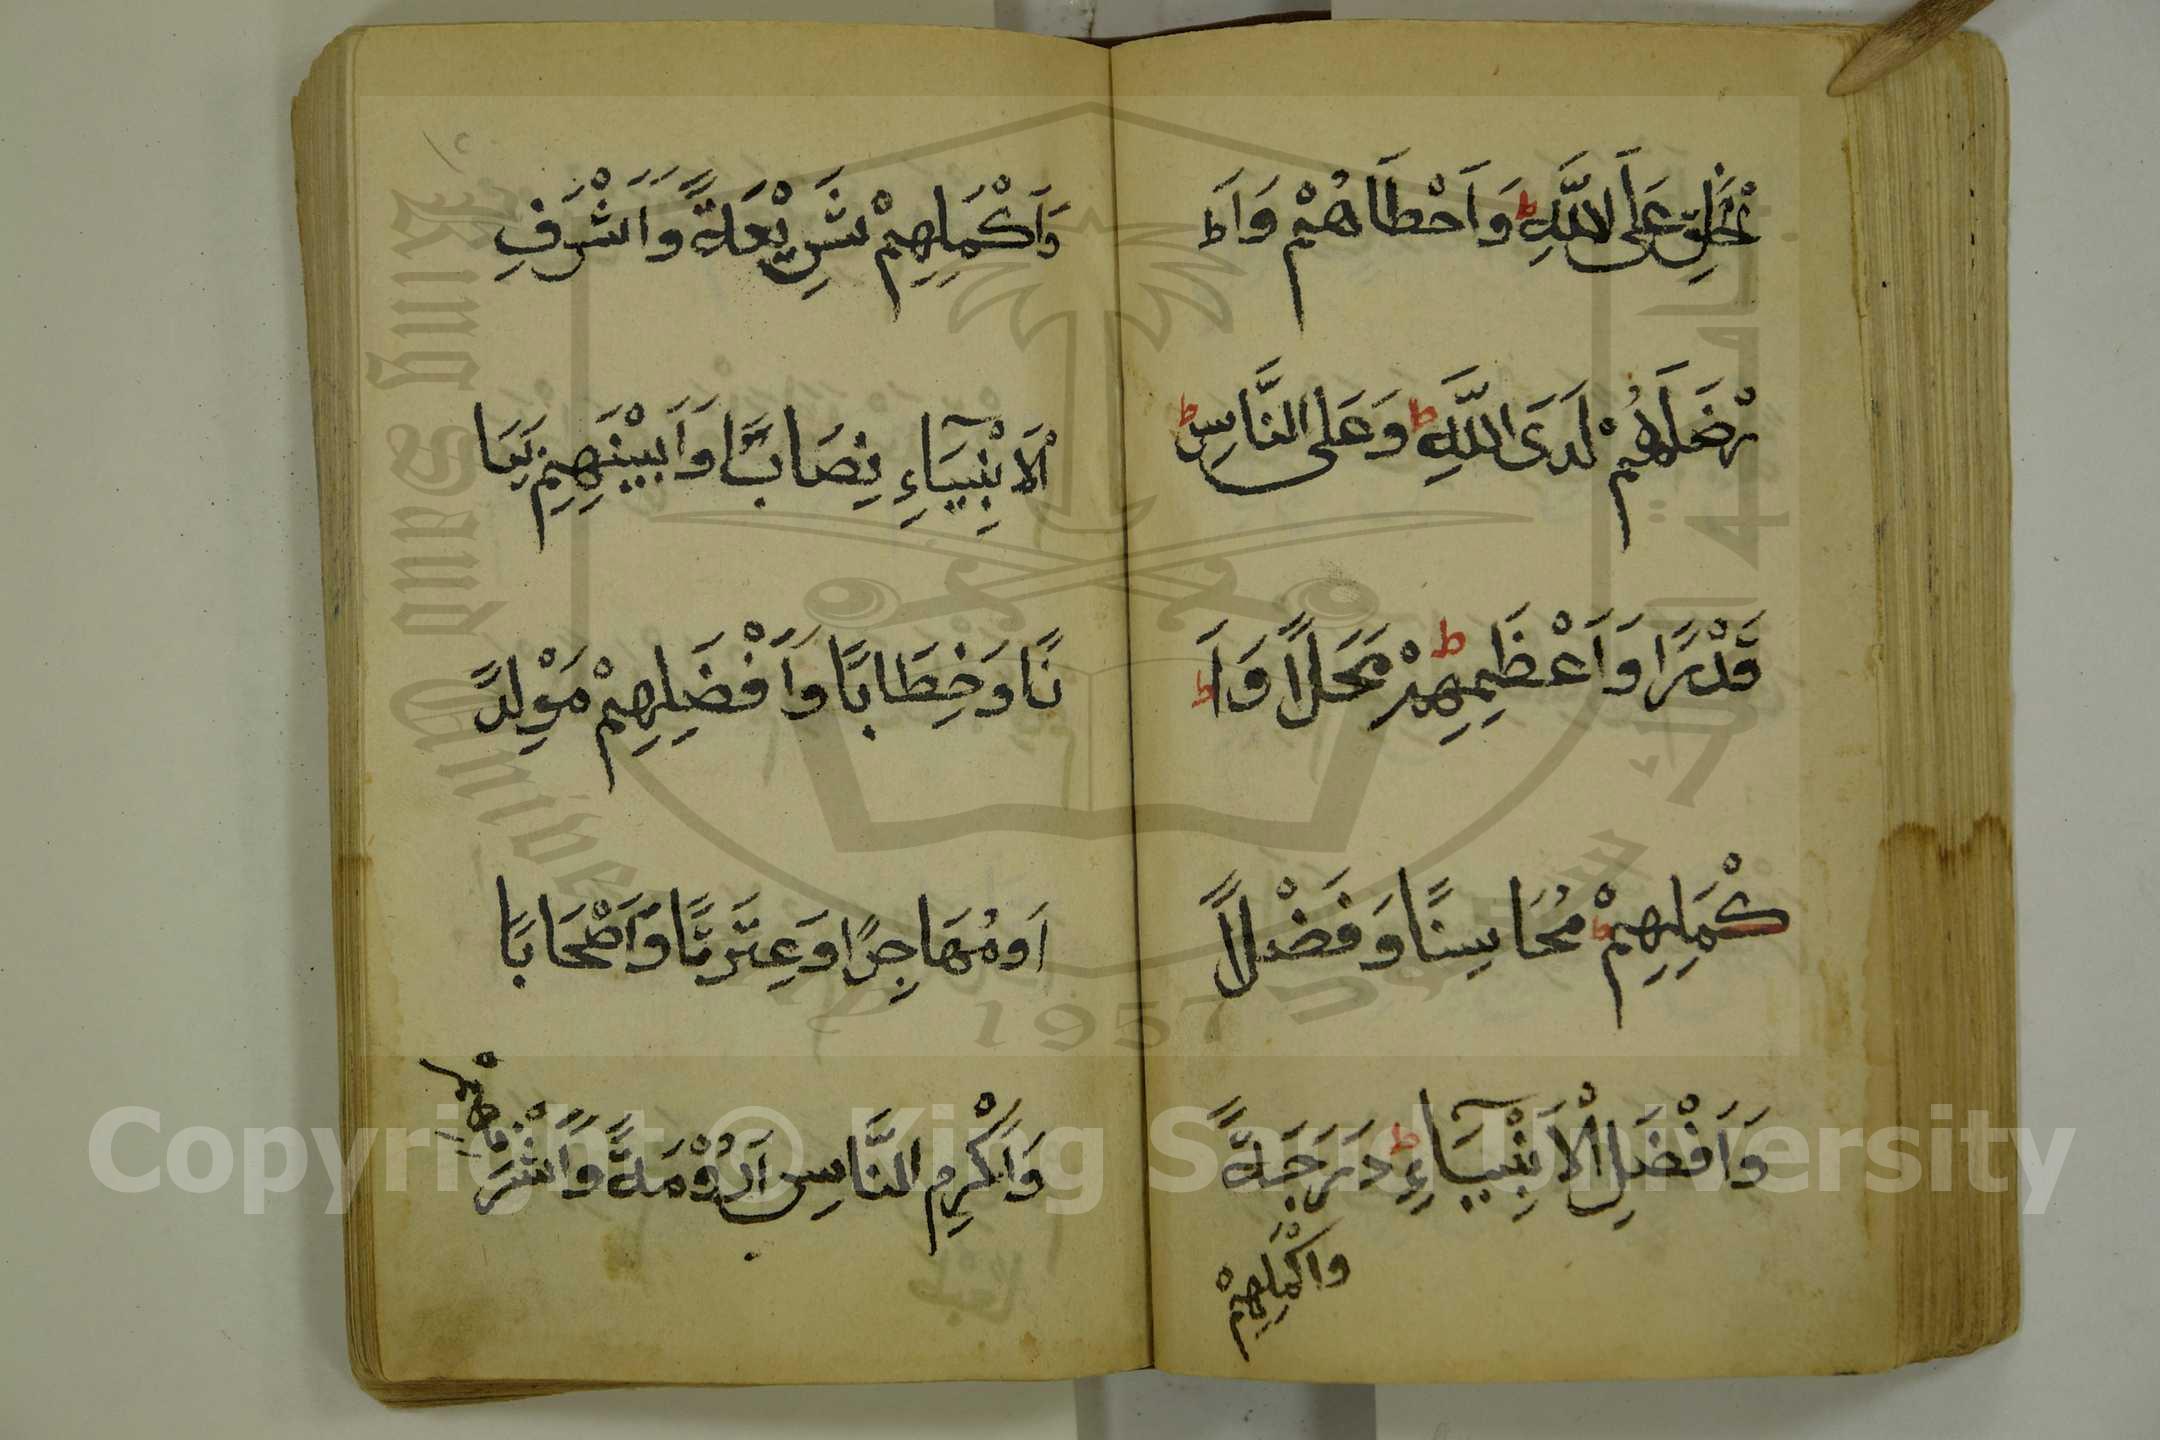 لْخَلْقِ عَلَى اللَّهِ ط وَاَحْظَاهُمْ وَاَ ط
رْضَاهُمْ لَدَى اللَّهِ ط وَعَلَى النَّاسِ ط
قَدْرًا وَاَعْظَمِهِمْ ط مَحَلًّا وَاَ ط
كْمَلِهِمْ ط مَحَاسِنًا وَفَضْلًا
وَاَفْضَلِ الْاَنْبِيَآءِ ط دَرَجَةً
وَاَكْمَلِهِمْ
وَاَكْمَلِهِمْ شَرِيْعَةً وَاَشْرَفِ
الْاَنْبِيَآءِ نِصَابًا وَاَبْيَنِهِمْ بَيَا
نًا وَخِطَابًا وَاَفْضَلِهِمْ مَوْلِدً
ا وَمُهَاجَرًا وَعِتْرَتًا وَاَصْحَابًا
وَاَكْرَمِ النَّاسِ اَرُوْمَةً وَاَشْرَ
فِهِمْ
King Saud University
1957
Copyright © King Saud University